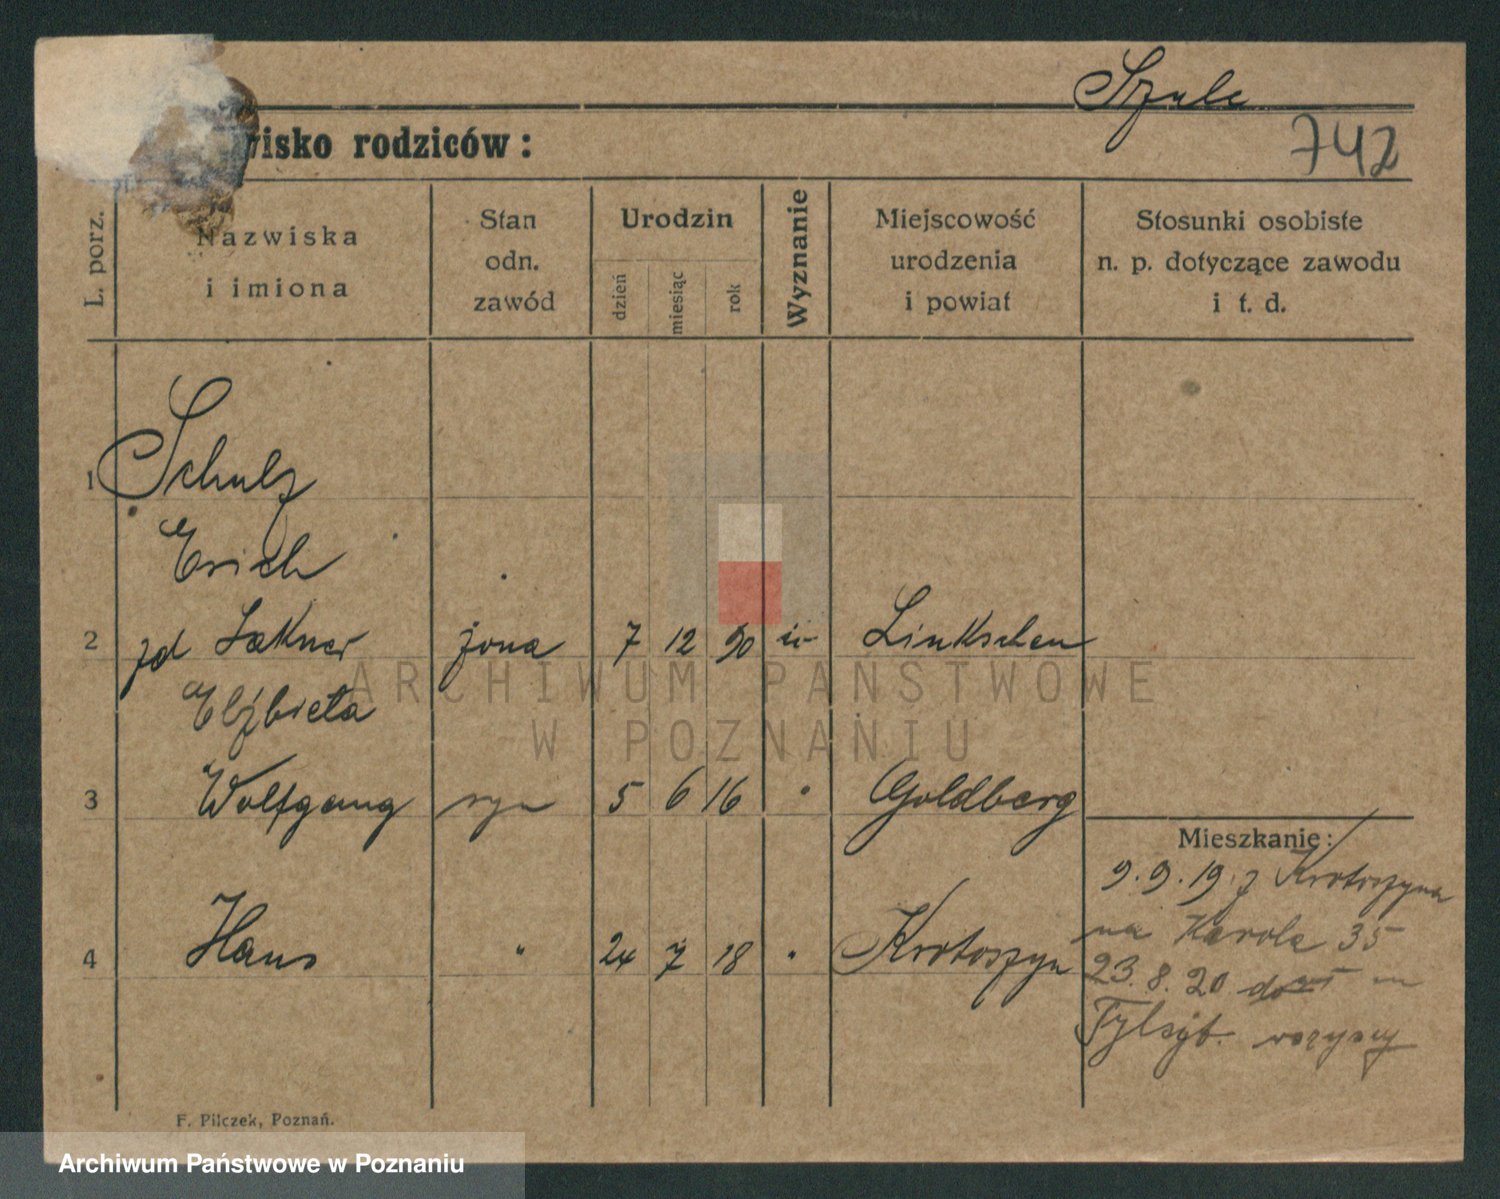 Szulc
wisko rodziców:
742
L. porz.
Nazwiska
i imiona
Stan
odn.
zawód
Urodzin
dzień
miesiąc
rok
Wyznanie
Miejscowość
urodzenia
i powiat
Stosunki osobiste
n. p. dotyczące zawodu
i t. d.
1 Schulz
Erich
2 zd Lakner żona 7 12 90 Linkschen
Elżbieta
3 Wolfgang syn 5 6 16 " Goldberg
Mieszkanie:
9.9.19 z Krotoszyna
4 Hans " 24 7 18 " Krotoszyn
na Karola 35
23.8.20
wszyscy
F. Pilczek, Poznań.
ARCHIWUM PAŃSTWOWE
W POZNANIU
Archiwum Państwowe w Poznaniu